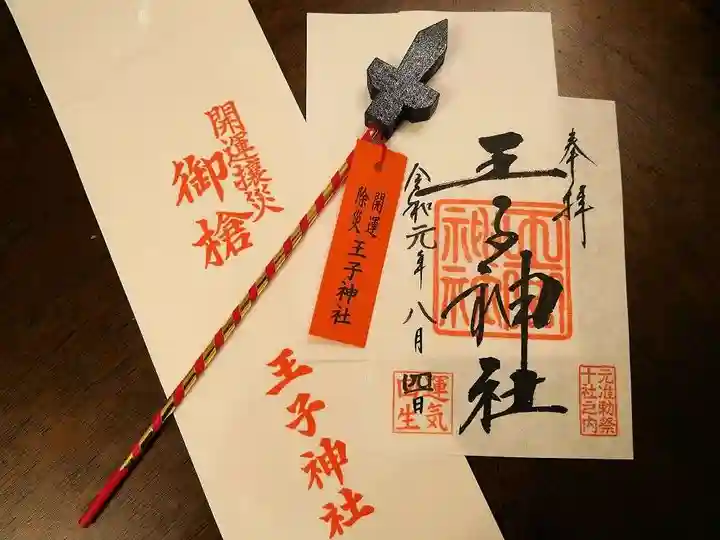 開運攘災
御槍
王子神社
開運
除災
王子神社
奉拝
王子神社
令和元年八月
四日
元准勅祭
十社之内
運気